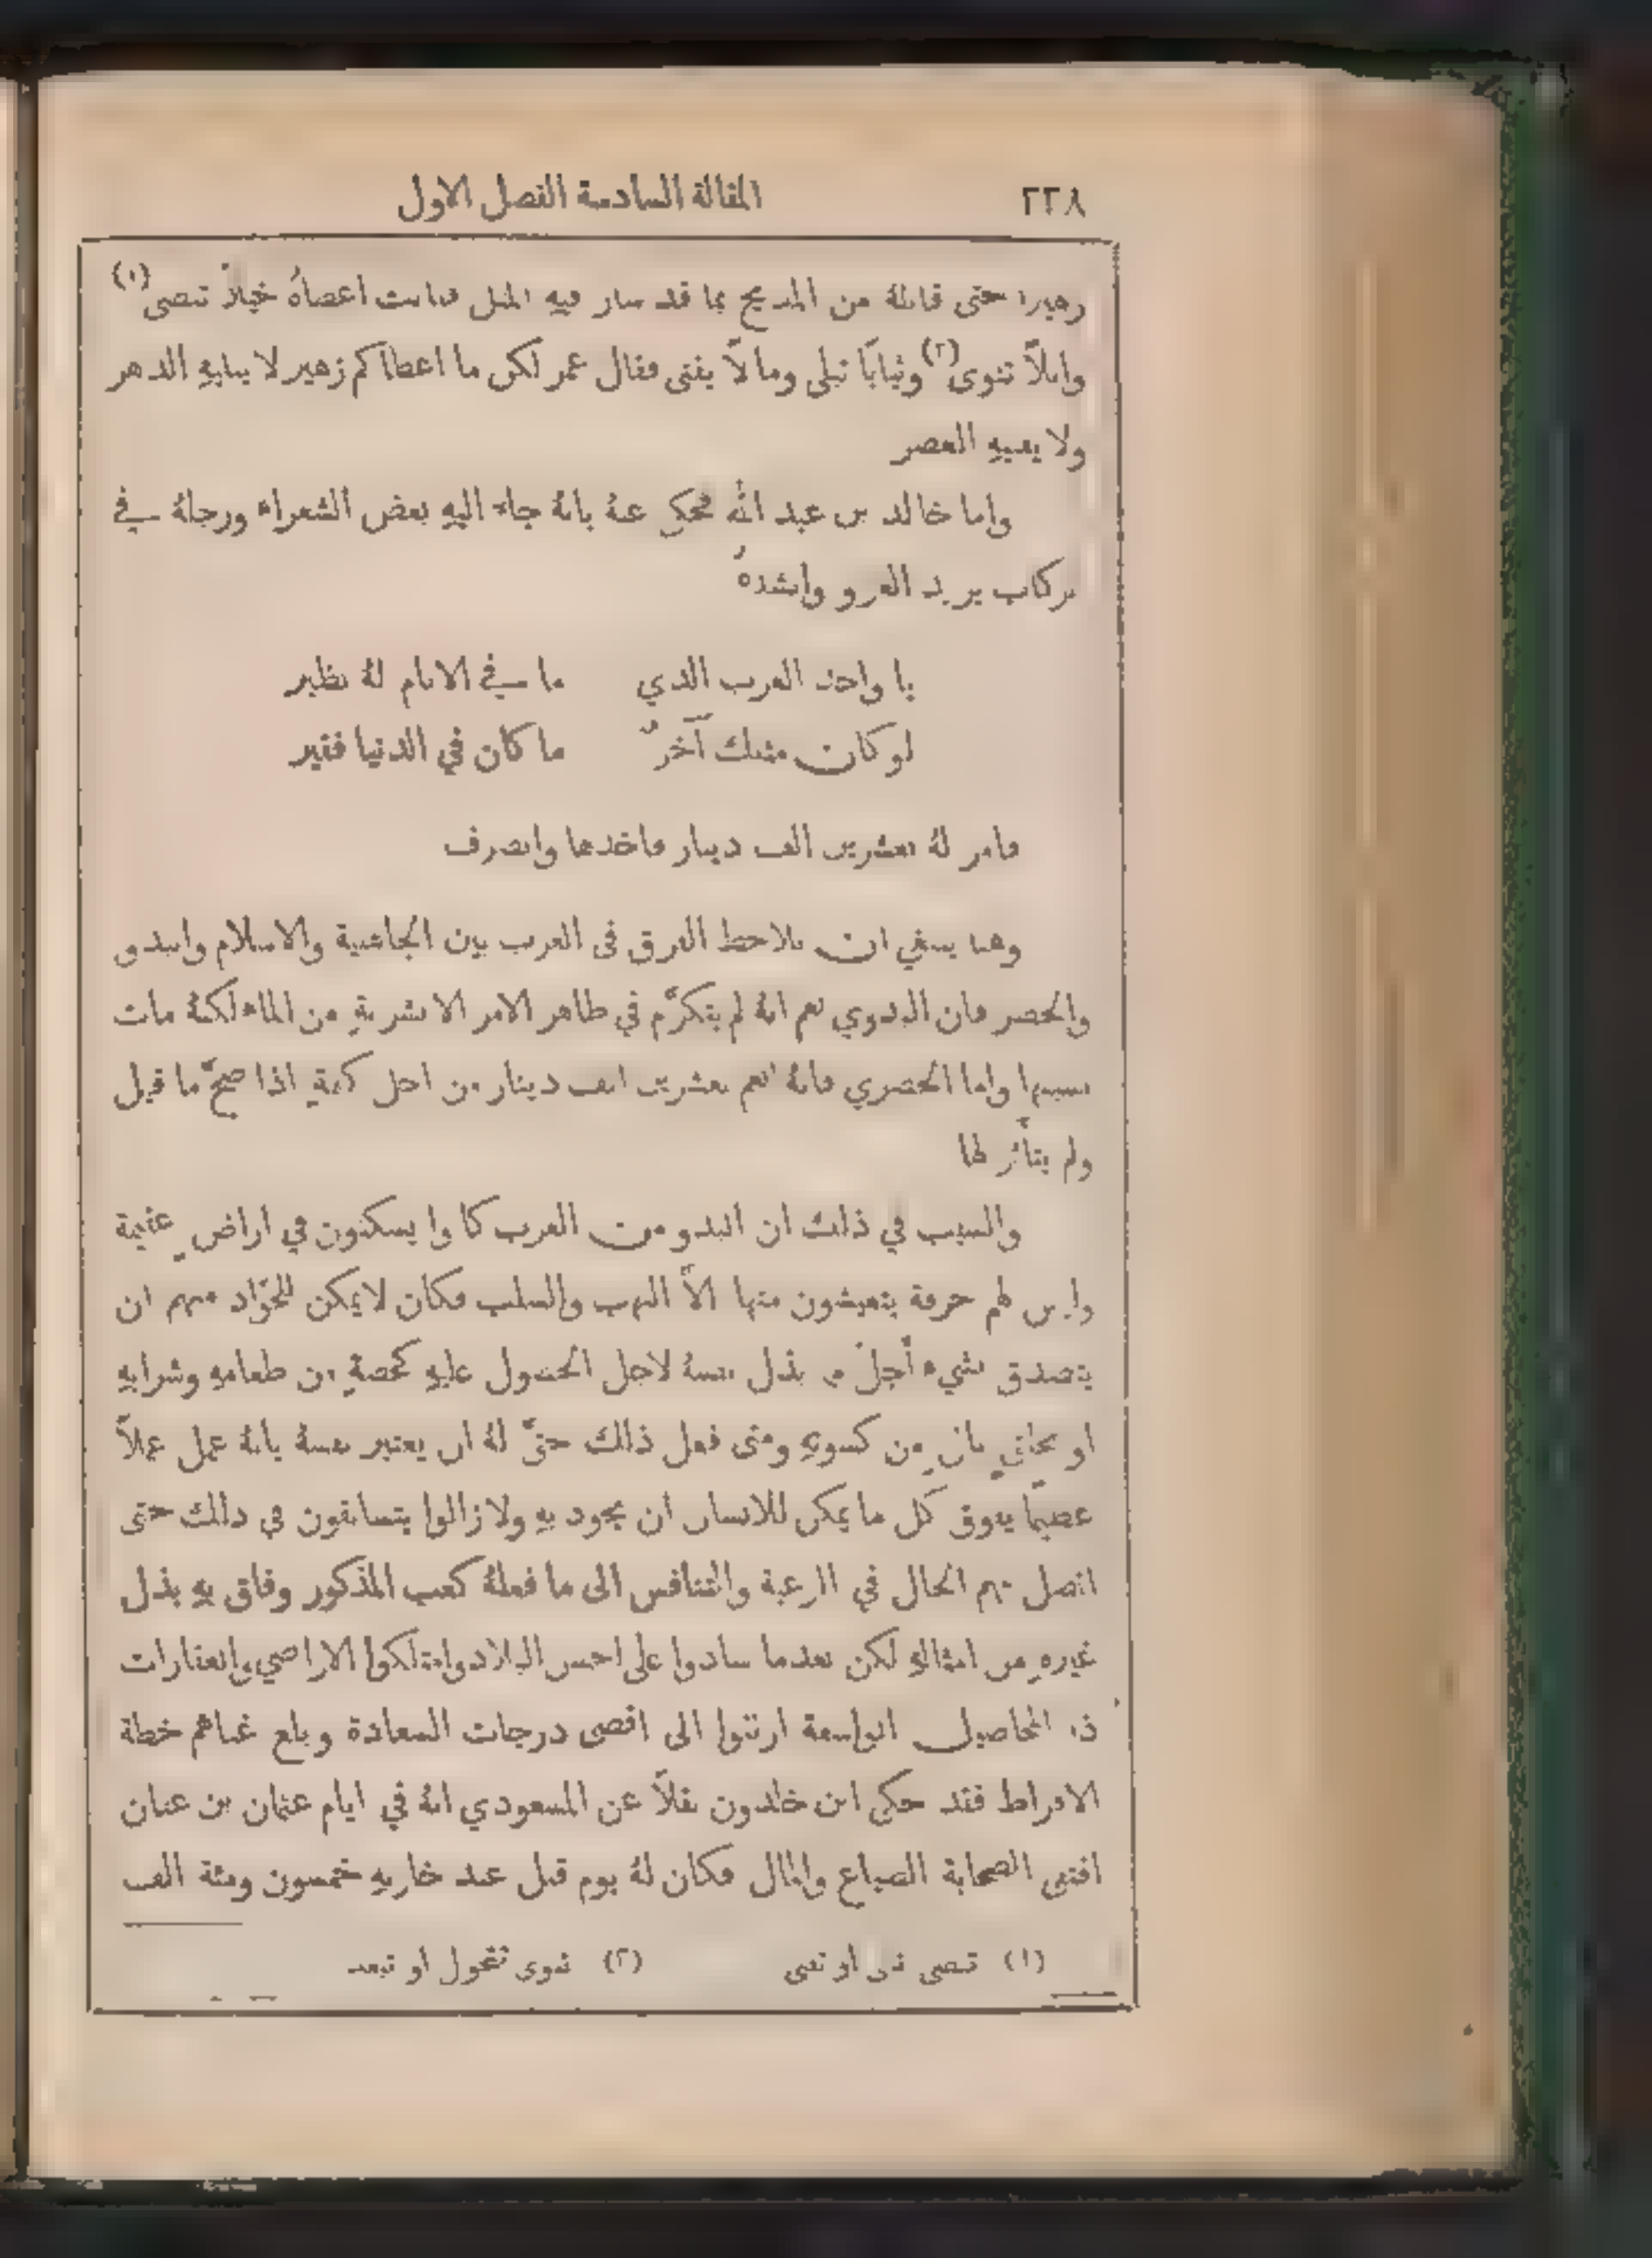 ٢٢٨ المقالة السادسة الفصل الاول
زهيرا حتى قابلة من المديح بما قد سار فيه المثل فاعطاهُ خيلاً تنصى(١)
وابلاً تتوى(٢) وثيابًا تبلى ومالاً يفنى فقال عمر لكن ما اعطاكم زهير لا يبليهِ الدهر
ولا يفنيهِ العصر
واما خالد بن عبد الله فحكي عنهُ بانهُ جاء اليهِ بعض الشعراء ورجلهُ في
ركاب يريد الغزو وانشدهُ
يا واحد العرب الذي ما في الانام لهُ نظير
لو كان مثلك آخرٌ ما كان في الدنيا فقير
فامر لهُ بعشرين الف دينار فاخذها وانصرف
وهنا ينبغي ان نلاحظ الفرق في العرب بين الجاهلية والاسلام والبدو
والحضر فان البدوي نعم انهُ لم يتكرَّم في ظاهر الامر الا بشربةٍ من الماء لكنهُ مات
بسببها واما الحضري فانهُ انعم بعشرين الف دينار من اجل كلمةٍ اذا صحَّ ما قيل
ولم يتأثر لها
والسبب في ذلك ان البدو من العرب كانوا يسكنون في اراضٍ عقيمة
وليس لهم حرفة يتعيشون منها الاَّ النهب والسلب فكان لا يمكن للجوَّاد منهم ان
يتصدق بشيء أجلّ من بذل نفسهُ لاجل الحصول عليهِ كحصةٍ من طعامهِ وشرابهِ
او بجانبٍ من كسوتهِ ومتى فعل ذلك حقَّ لهُ ان يعتبر نفسهُ بانهُ عمل عملاً
عظيمًا يفوق كل ما يمكن للانسان ان يجود بهِ ولا زالوا يتسابقون في ذلك حتى
اتصل بهم الحال في الرغبة والتنافس الى ما فعلهُ كعب المذكور وفاق بهِ بذل
غيرهِ من امثالهِ لكن بعدما سادوا على احسن البلاد وامتلكوا الاراضي والعقارات
ذات المحاصيل الواسعة ارتقوا الى اقصى درجات السعادة وبلغ غناهم خطة
الافراط فقد حكى ابن خلدون نقلاً عن المسعودي انهُ في ايام عثمان بن عفان
اقتنى الصحابة الضياع والمال فكان لهُ يوم قتل عند خازنهِ خمسون ومئة الف
(١) تنصى او تفنى (٢) تتوى تتحول او تبعد